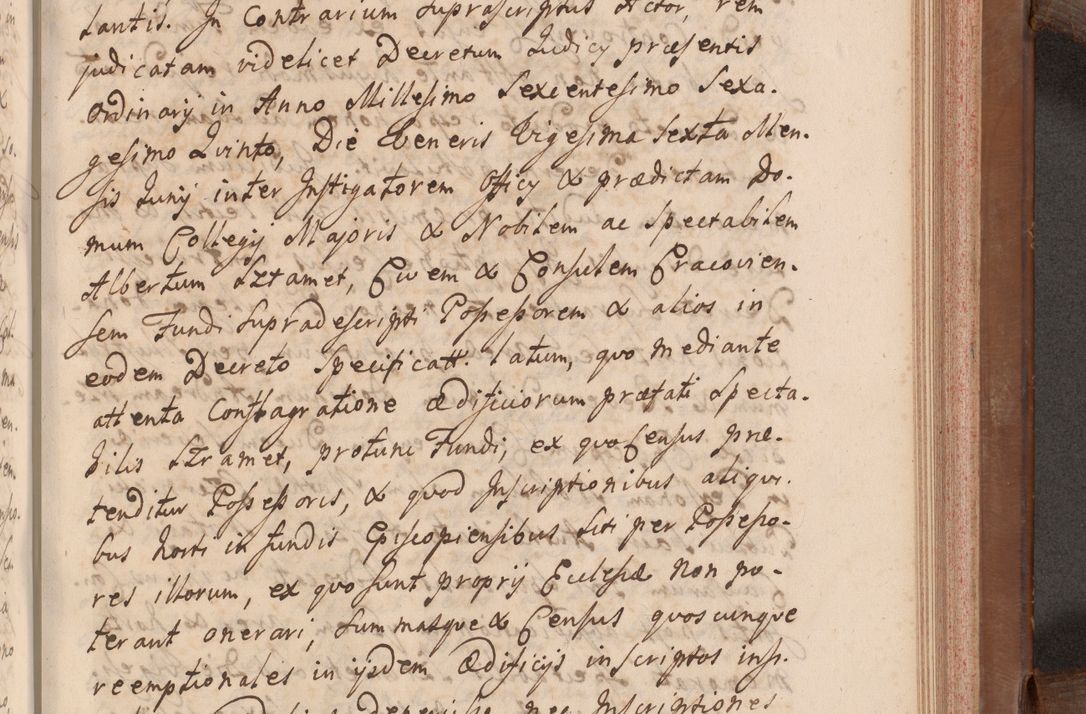 tantis. In Contrarium supra scriptus Actor, rem
judicatam videlicet Decretum Judicy præsentis
Ordinarij in Anno Millesimo Sexcentesimo Sexa-
gesimo Quinto, Die Veneris Vigesima Sexta Men-
sis Junij inter Instigatorem Officy & prædictam Do-
mum Collegij Majoris & Nobilem ac Spectabilem
Albertum Sztamet, Civem & Consulem Cracovien-
sem Fundi supra descripti Possessorem & alios in
eodem Decreto Specificatt. latum, quo mediante
attenta Conflagratione ædificiorum præfati Specta-
bilis Sztamet, protunc Fundi, ex quo Census præ-
tenditur Possessoris, & quod Inscriptionibus aliqui-
bus horti in fundis Episcopiensibus siti per Possesso-
res illorum, ex quo sunt proprij Ecclesiæ non po-
terant onerari, summasque & Census quoscunque
reemptionales in ijsdem Ædificijs inscriptos insp.
nec Inscriptiones